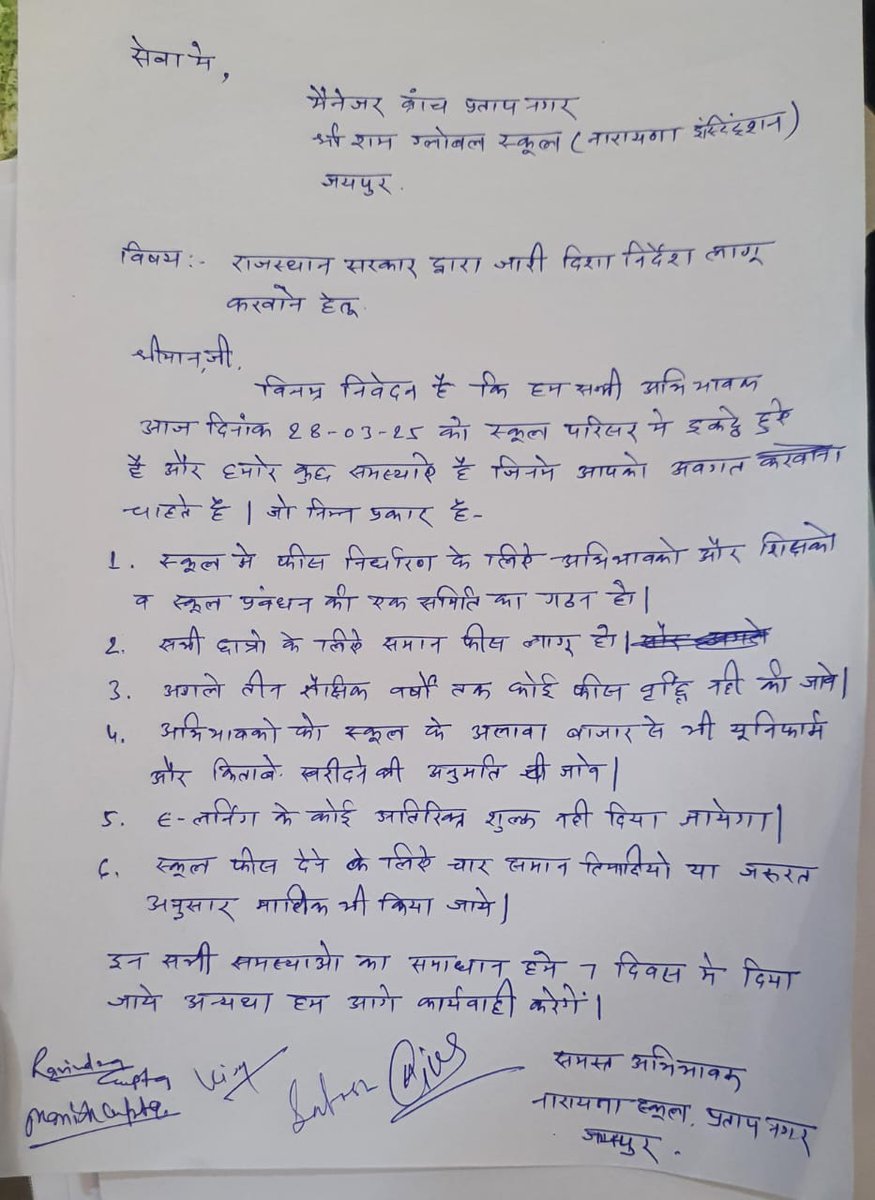 सेवा मे,
मैनेजर ब्रांच प्रताप नगर
श्री राम ग्लोबल स्कूल (नारायणा इंस्टिट्यूशन)
जयपुर.
विषय:- राजस्थान सरकार द्वारा जारी दिशा निर्देश लागू
करवाने हेतू.
श्रीमान जी,
विनम्र निवेदन है कि हम सभी अभिभावक
आज दिनांक 28-03-25 को स्कूल परिसर मे इकट्ठे हुऐ
है और हमारे कुछ समस्याऐ है जिनमे आपको अवगत करवाना
चाहते है | जो निम्न प्रकार है-
1. स्कूल मे फीस निर्धारण के लिऐ अभिभावको और शिक्षको
व स्कूल प्रबंधन की एक समिति का गठन हो |
2. सभी छात्रो के लिऐ समान फीस लागू हो |
3. अगले तीन शैक्षिक वर्षों तक कोई फीस वृद्धि नही की जावे |
4. अभिभावको को स्कूल के अलावा बाजार से भी यूनिफार्म
और किताबे खरीदने की अनुमति दी जावे |
5. E-लर्निंग के कोई अतिरिक्त शुल्क नही दिया जायेगा |
6. स्कूल फीस देने के लिऐ चार समान तिमाहियो या जरुरत
अनुसार मासिक भी किया जाये |
इन सभी समस्याओ का समाधान हमे 7 दिवस मे दिया
जाये अन्यथा हम आगे कार्यवाही करेगें |
Ravindra
Gupta
Manish Gupta
समस्त अभिभावक
नारायणा स्कूल, प्रताप नगर
जयपुर.